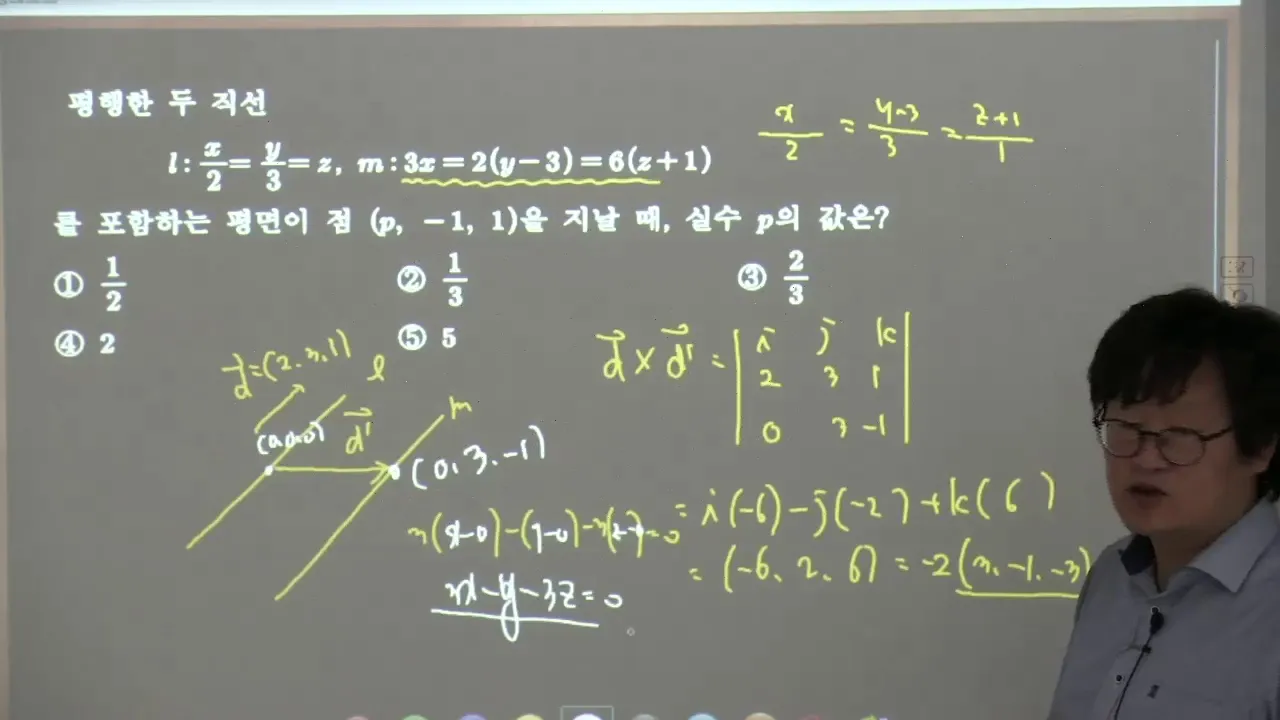 평행한 두 직선
l : x/2 = y/3 = z, m : 3x = 2(y-3) = 6(z+1)
를 포함하는 평면이 점 (p, -1, 1)을 지날 때, 실수 p의 값은?
① 1/2 ② 1/3 ③ 2/3
④ 2 ⑤ 5
x/2 = y-3/3 = z+1/1
d⃗=(2.3.1) l
d⃗' m
(0.0.0)
(0.3.-1)
3(x-0)-(y-0)-3(z-0)=0
3x-y-3z=0
d⃗ × d⃗' = | i j k
2 3 1
0 3 -1 |
= i(-6)-j(-2)+k(6)
= (-6.2.6) = -2(3.-1.-3)